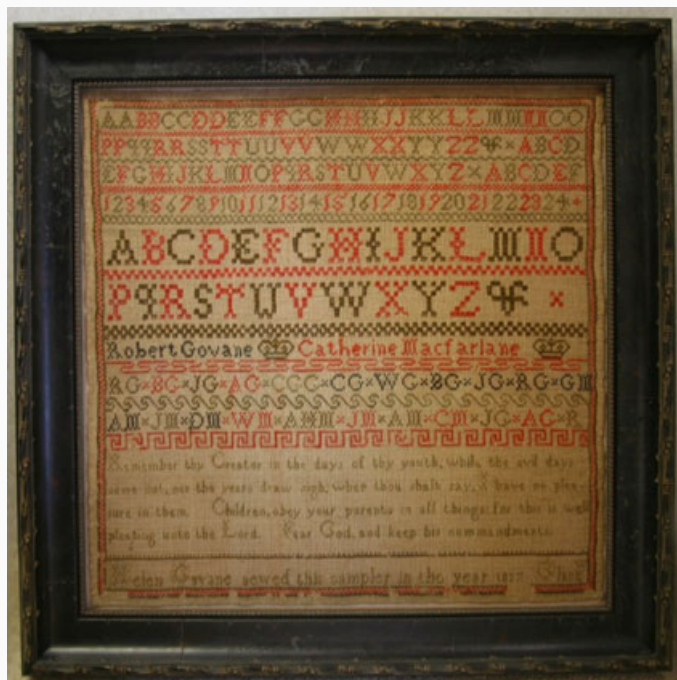 AABBCCDDEEFFGGHHIIJJKKLLMMNNOO
PPQQRRSSTTUUVVWWXXYYZZ&×ABCD
EFGHIJKLMNOPQRSTUVWXYZ×ABCDEF
1 2 3 4 5 6 7 8 9 10 11 12 13 14 15 16 17 18 19 20 21 22 23 24
ABCDEFGHIJKLMNO
PQRSTUVWXYZ& ×
Robert Govane Catherine Macfarlane
RG×BG×JG×AG×CCC×CG×WG×BG×JG×RG×GM
AM×JM×DM×WM×JM×AM×CM×JG×AG×R
Remember thy Creator in the days of thy youth, while the evil days
come not, nor the years draw nigh, when thou shalt say, I have no plea-
sure in them. Children, obey your parents in all things: for this is well
pleasing unto the Lord. Fear God, and keep his commandments.
Helen Govane sewed this sampler in the year